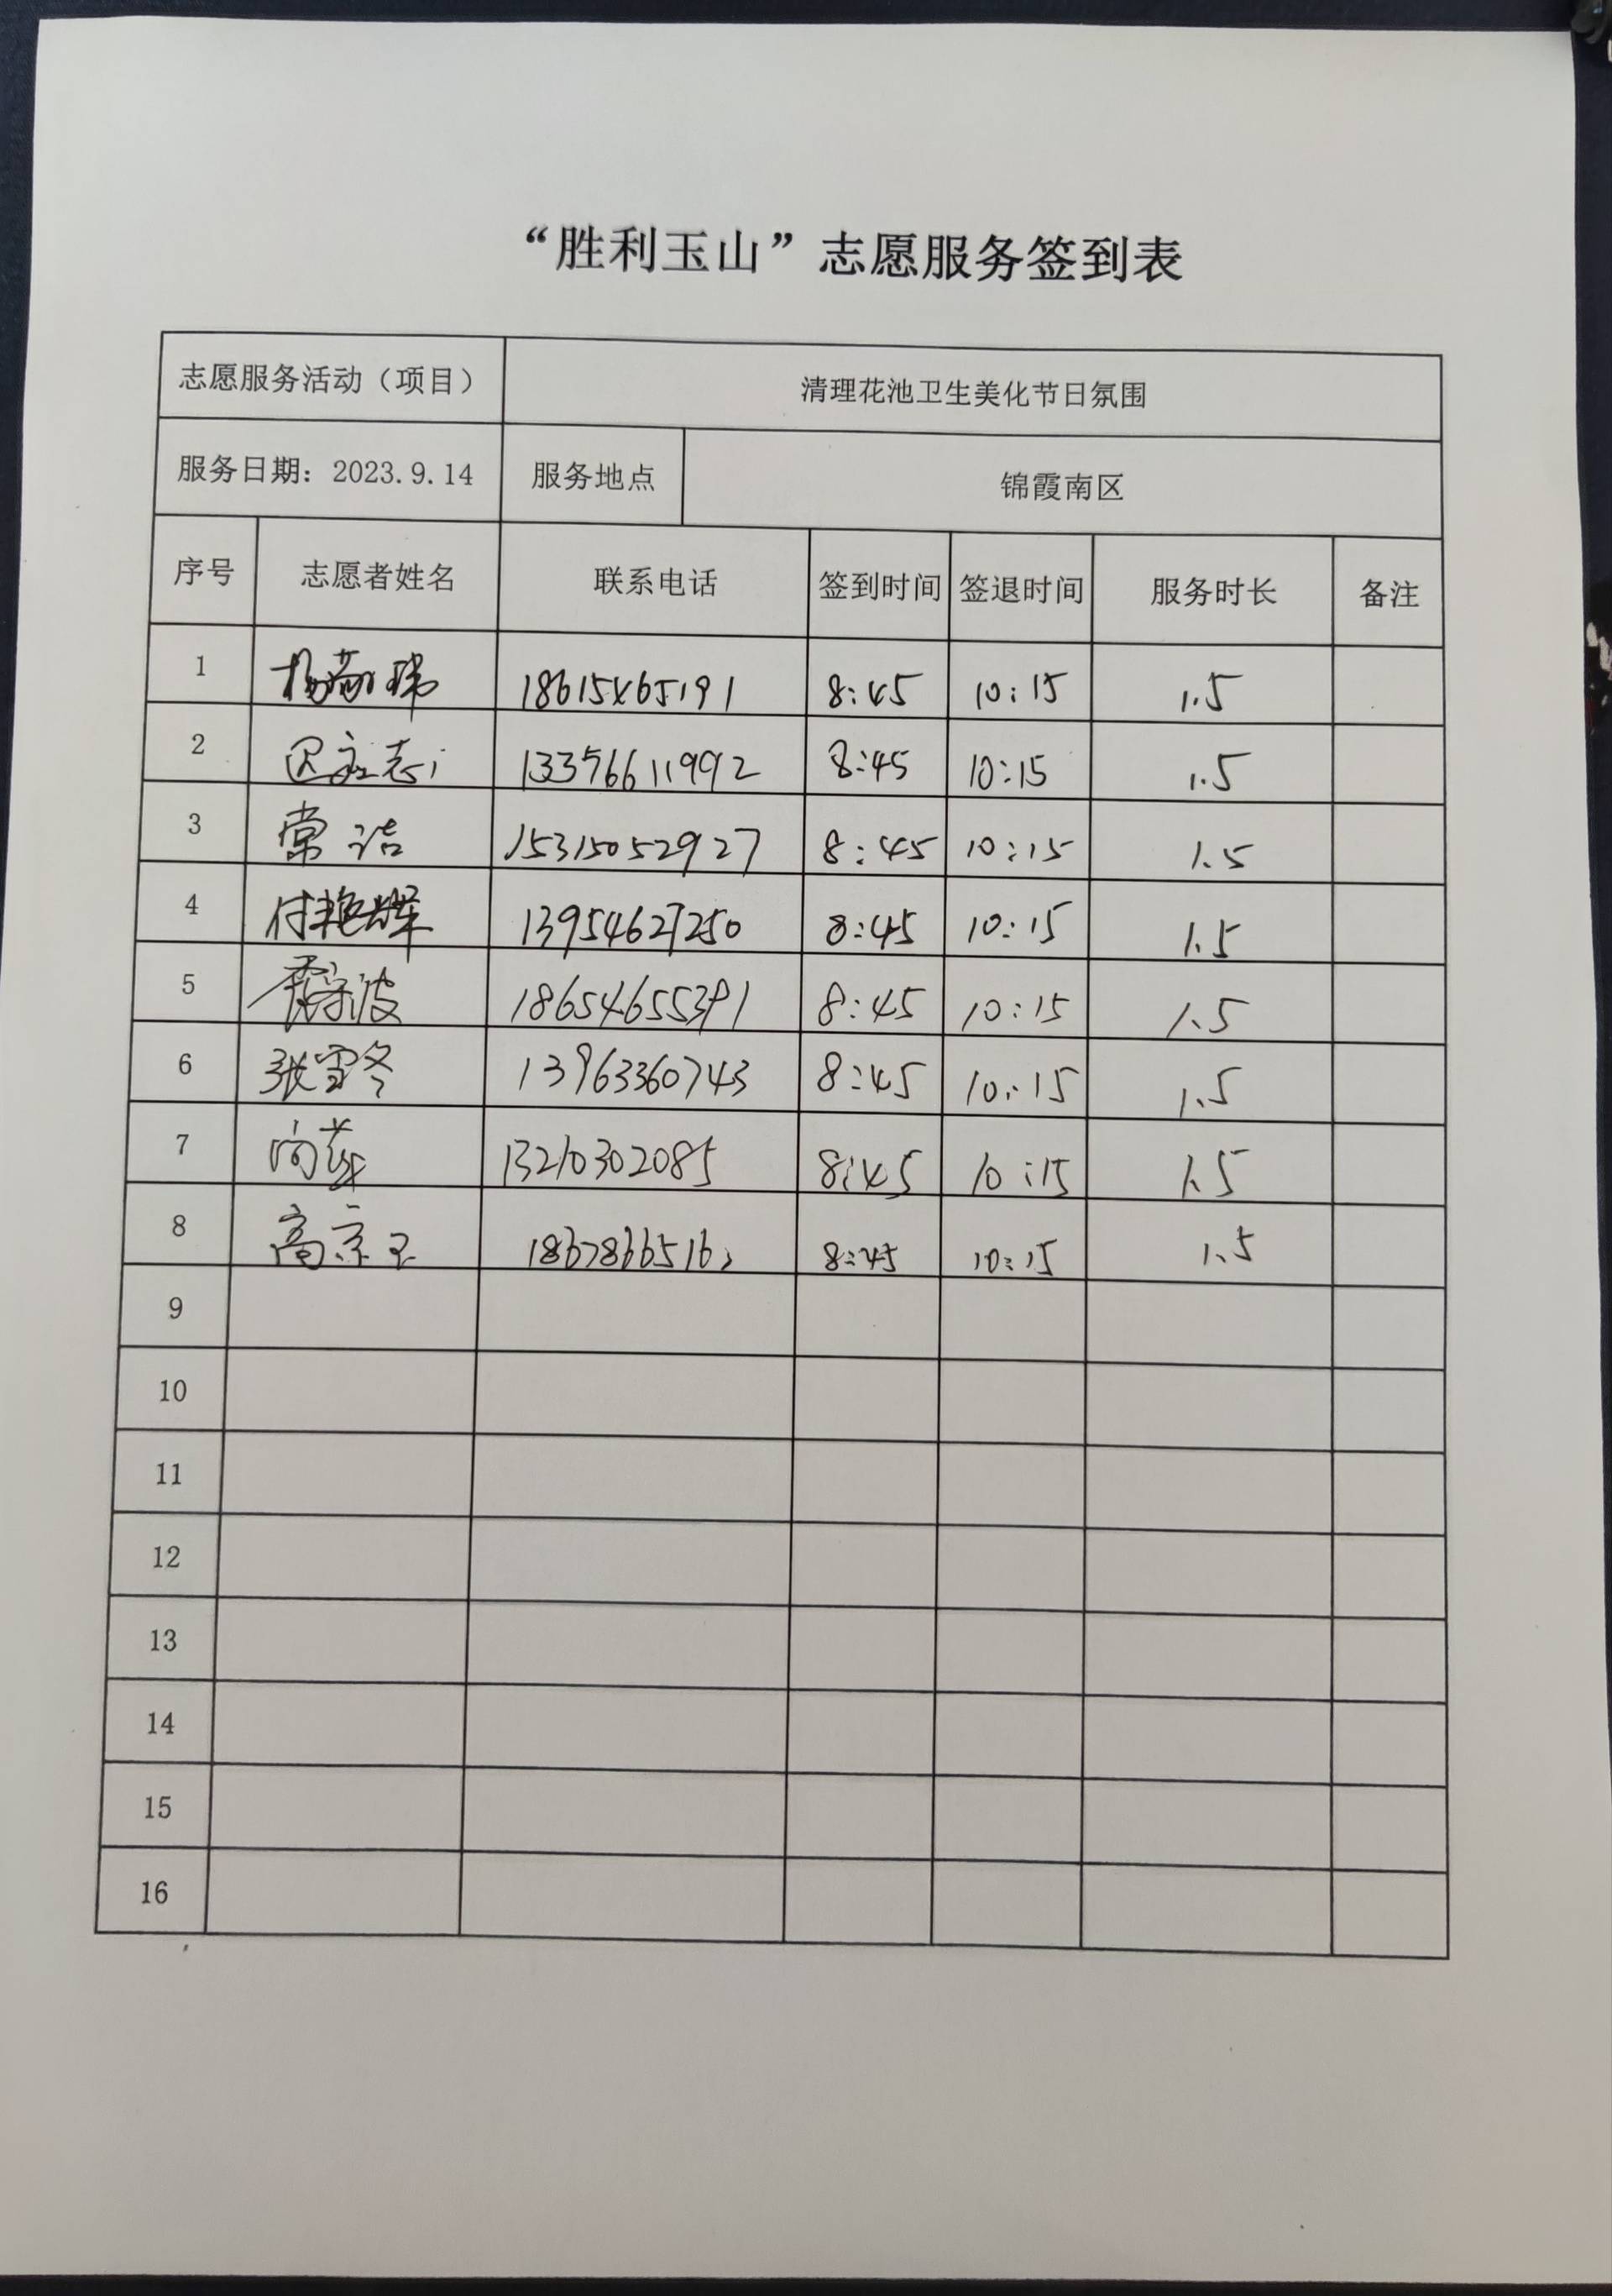 “胜利玉山”志愿服务签到表
志愿服务活动（项目） 清理花池卫生美化节日氛围
服务日期：2023.9.14 服务地点 锦霞南区
序号 志愿者姓名 联系电话 签到时间 签退时间 服务时长 备注
1 18615465191 8:45 10:15 1.5
2 8:45 10:15 1.5
3 常洁 15315052927 8:45 10:15 1.5
4 付艳辉 13954627250 8:45 10:15 1.5
5 18654655391 8:45 10:15 1.5
6 张雪冬 13963360743 8:45 10:15 1.5
7 13210302085 8:45 10:15 1.5
8 高京玉 8:45 10:15 1.5
9
10
11
12
13
14
15
16